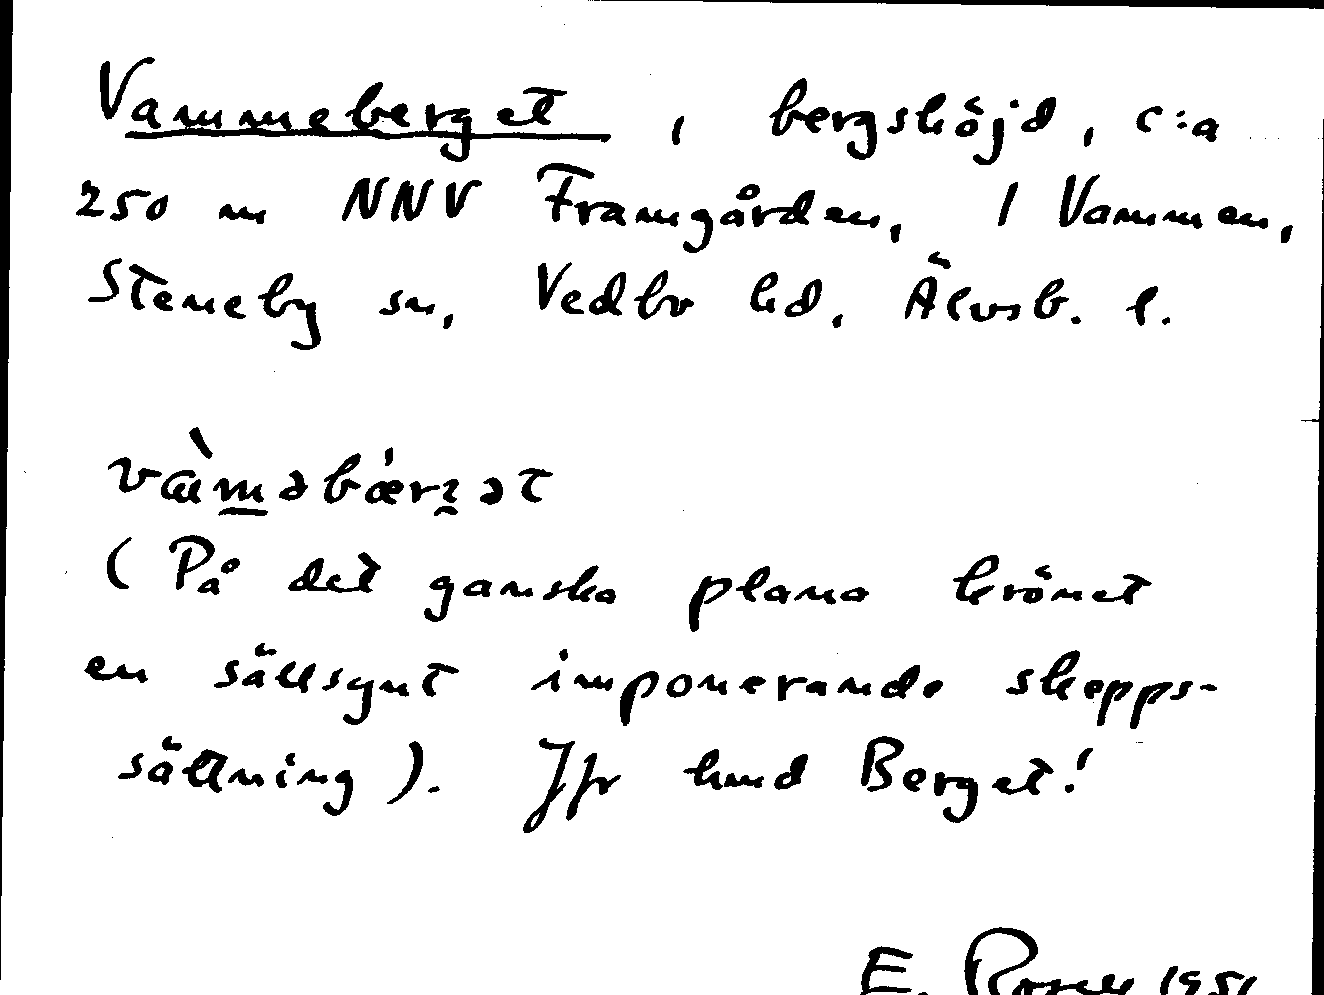 Vammeberget, bergshöjd, c:a
250 m NNV Framgården, 1 Vammen,
Steneby sn, Vedbo hd, Älvsb. l.
vàməbærʒət
(På det ganska plana krönet
en sällsynt imponerande skepps-
sättning). Jfr hmd Berget!
E. 1951